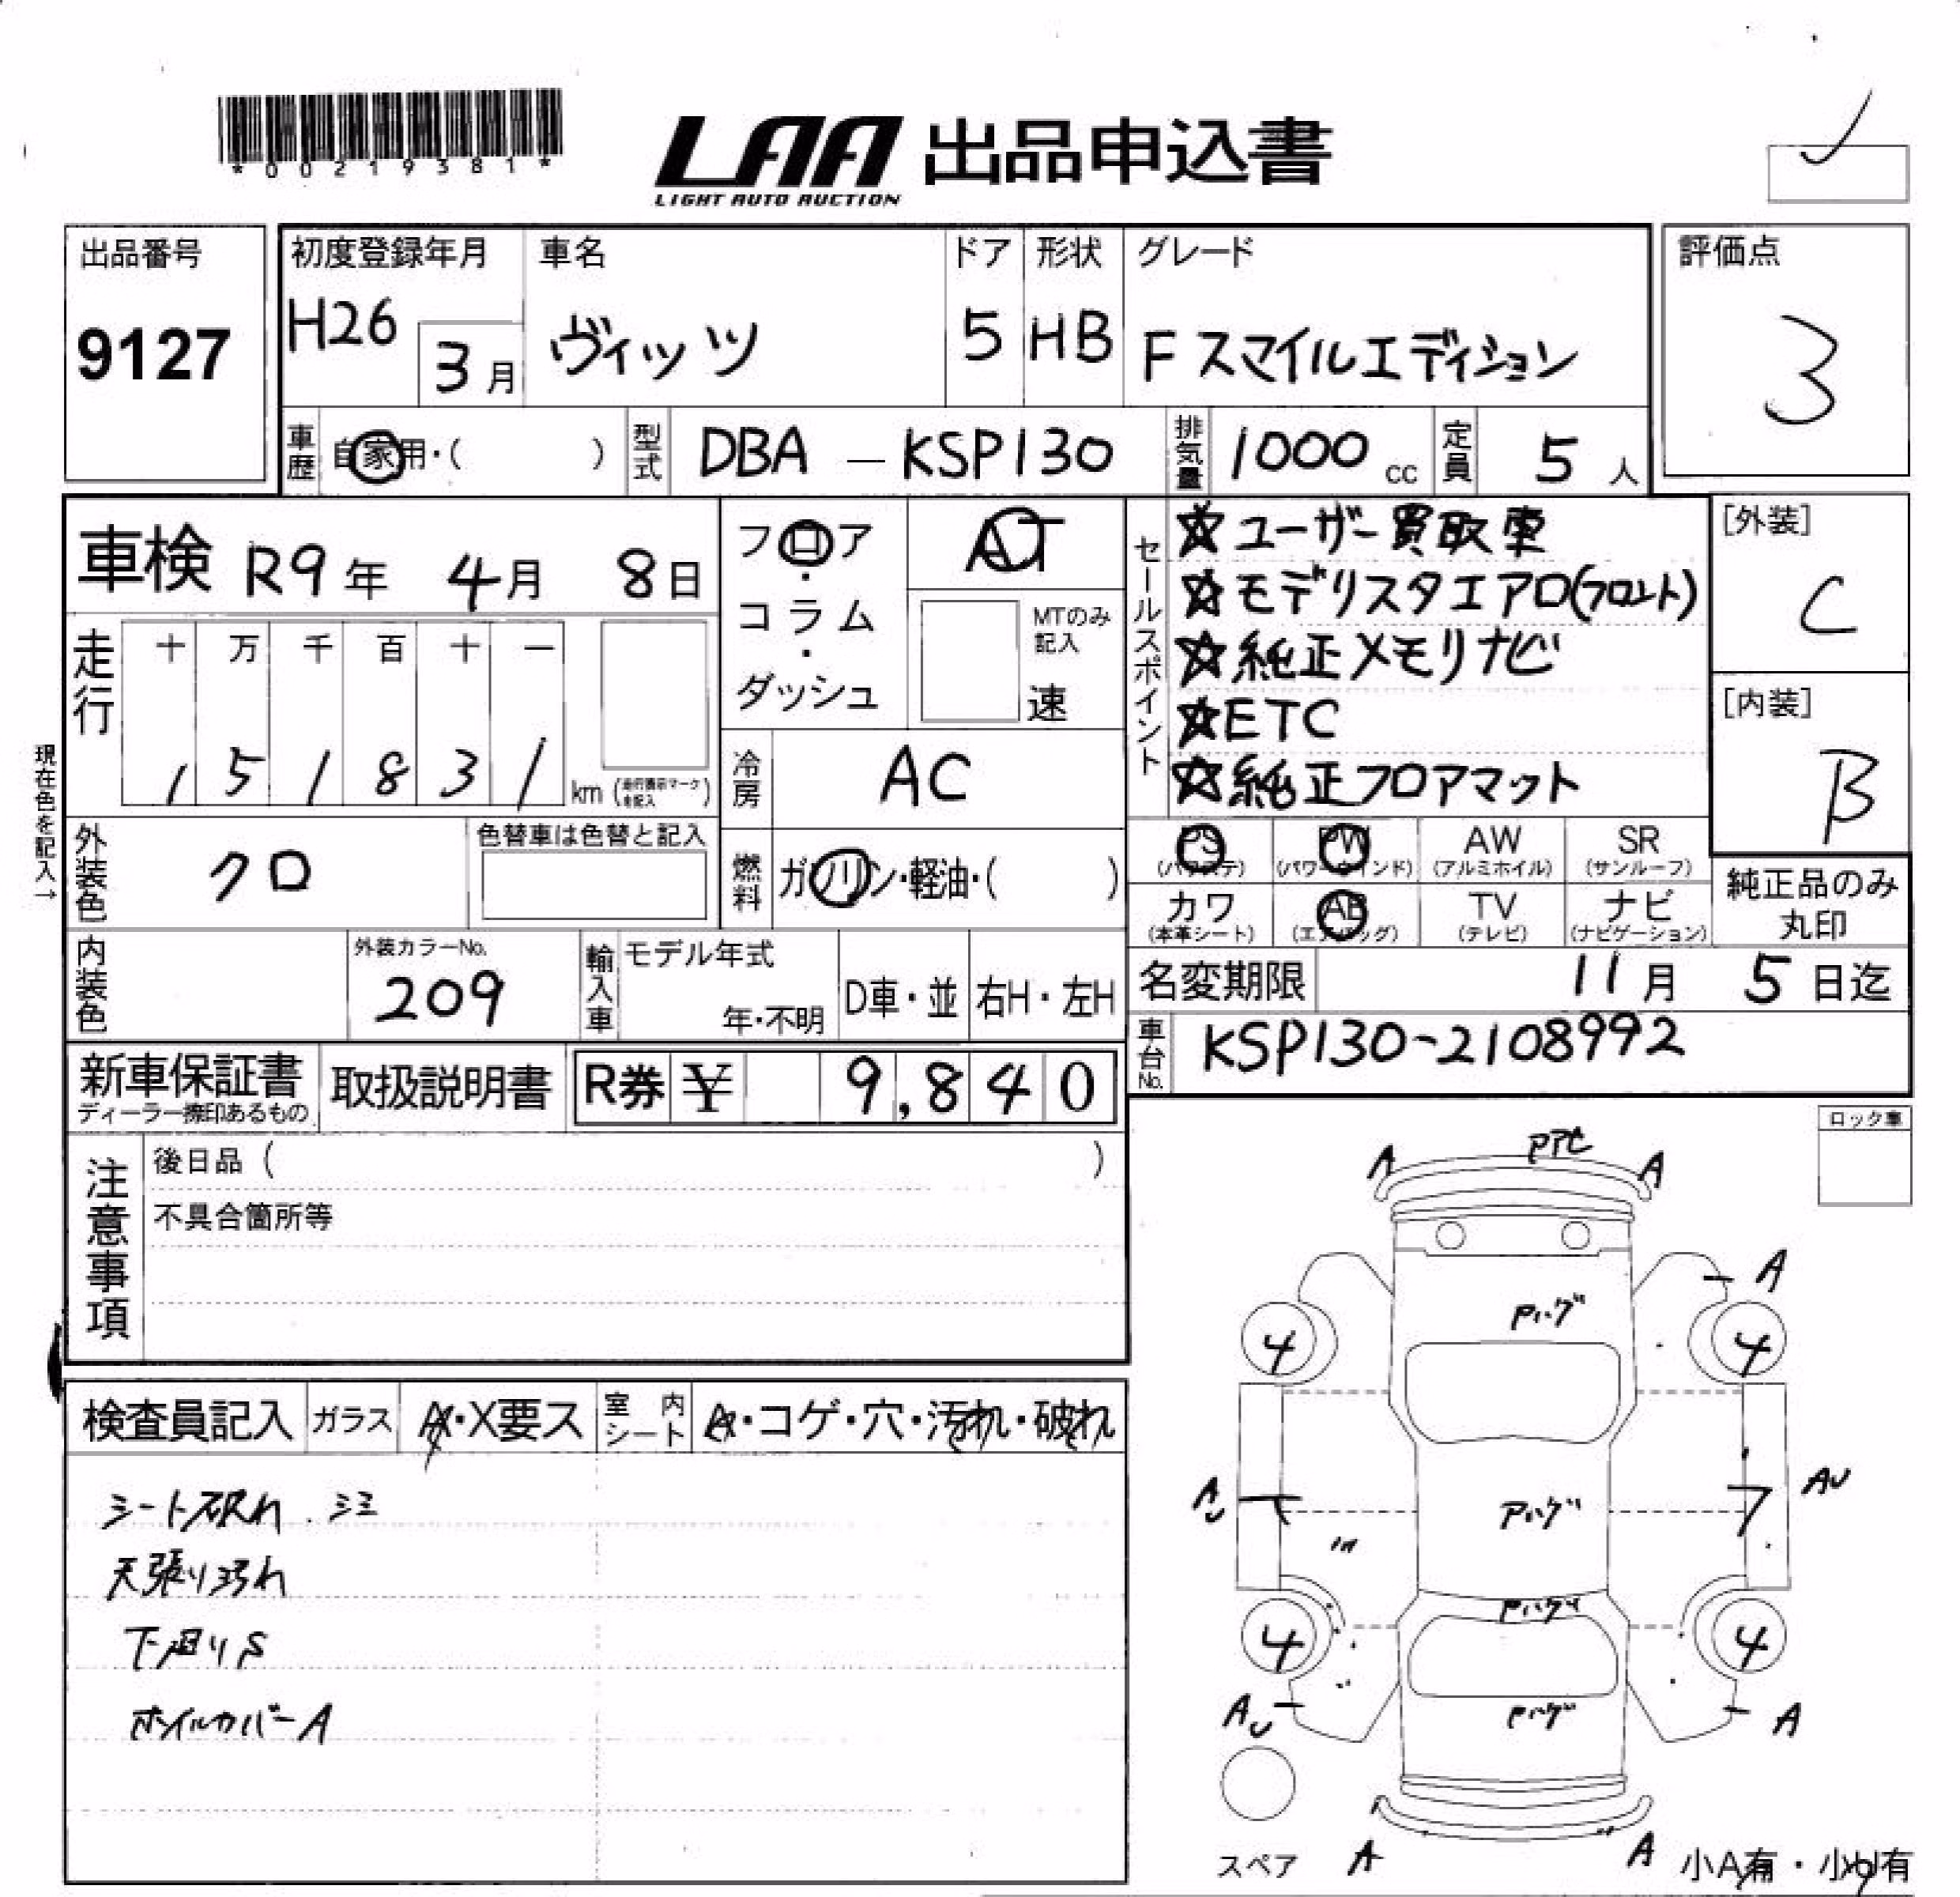 *00219381*
LAA 出品申込書
LIGHT AUTO AUCTION
出品番号
9127
初度登録年月
H26 3月
車名
ヴィッツ
ドア
5
形状
HB
グレード
F スマイルエディション
評価点
3
車歴 自家用・( )
型式 DBA — KSP130
排気量 1000 cc
定員 5 人
車検 R9年 4月 8日
フロア・コラム・ダッシュ
AT
MTのみ記入
速
セールスポイント
☆ユーザー買取車
☆モデリスタエアロ(フロント)
☆純正メモリナビ
☆ETC
☆純正フロアマット
[外装]
C
[内装]
B
走行
十 万 千 百 十 一
1 5 1 8 3 1 km (走行表示マークを記入)
冷房 AC
現在色を記入→
外装色 クロ
色替車は色替と記入
燃料 ガソリン・軽油・( )
PS (パワステ)
PW (パワーウインド)
AW (アルミホイル)
SR (サンルーフ)
カワ (本革シート)
AB (エアバッグ)
TV (テレビ)
ナビ (ナビゲーション)
純正品のみ丸印
内装色
外装カラーNo.
209
輸入車
モデル年式
年・不明
D車・並
右H・左H
名変期限 11月 5日迄
車台No. KSP130-2108992
新車保証書
ディーラー捺印あるもの
取扱説明書
R券 ¥ 9,840
注意事項
後日品 ( )
不具合箇所等
ロック車
検査員記入
ガラス A・X要ス
室内シート A・コゲ・穴・汚れ・破れ
シート破れ.シミ
天張り汚れ
下廻りS
ホイルカバーA
A A
A
Pハゲ
4 4
AU AU
Pハゲ
Pハゲ
4 4
AU A
Pハゲ
スペア
A A
小A有・小U有